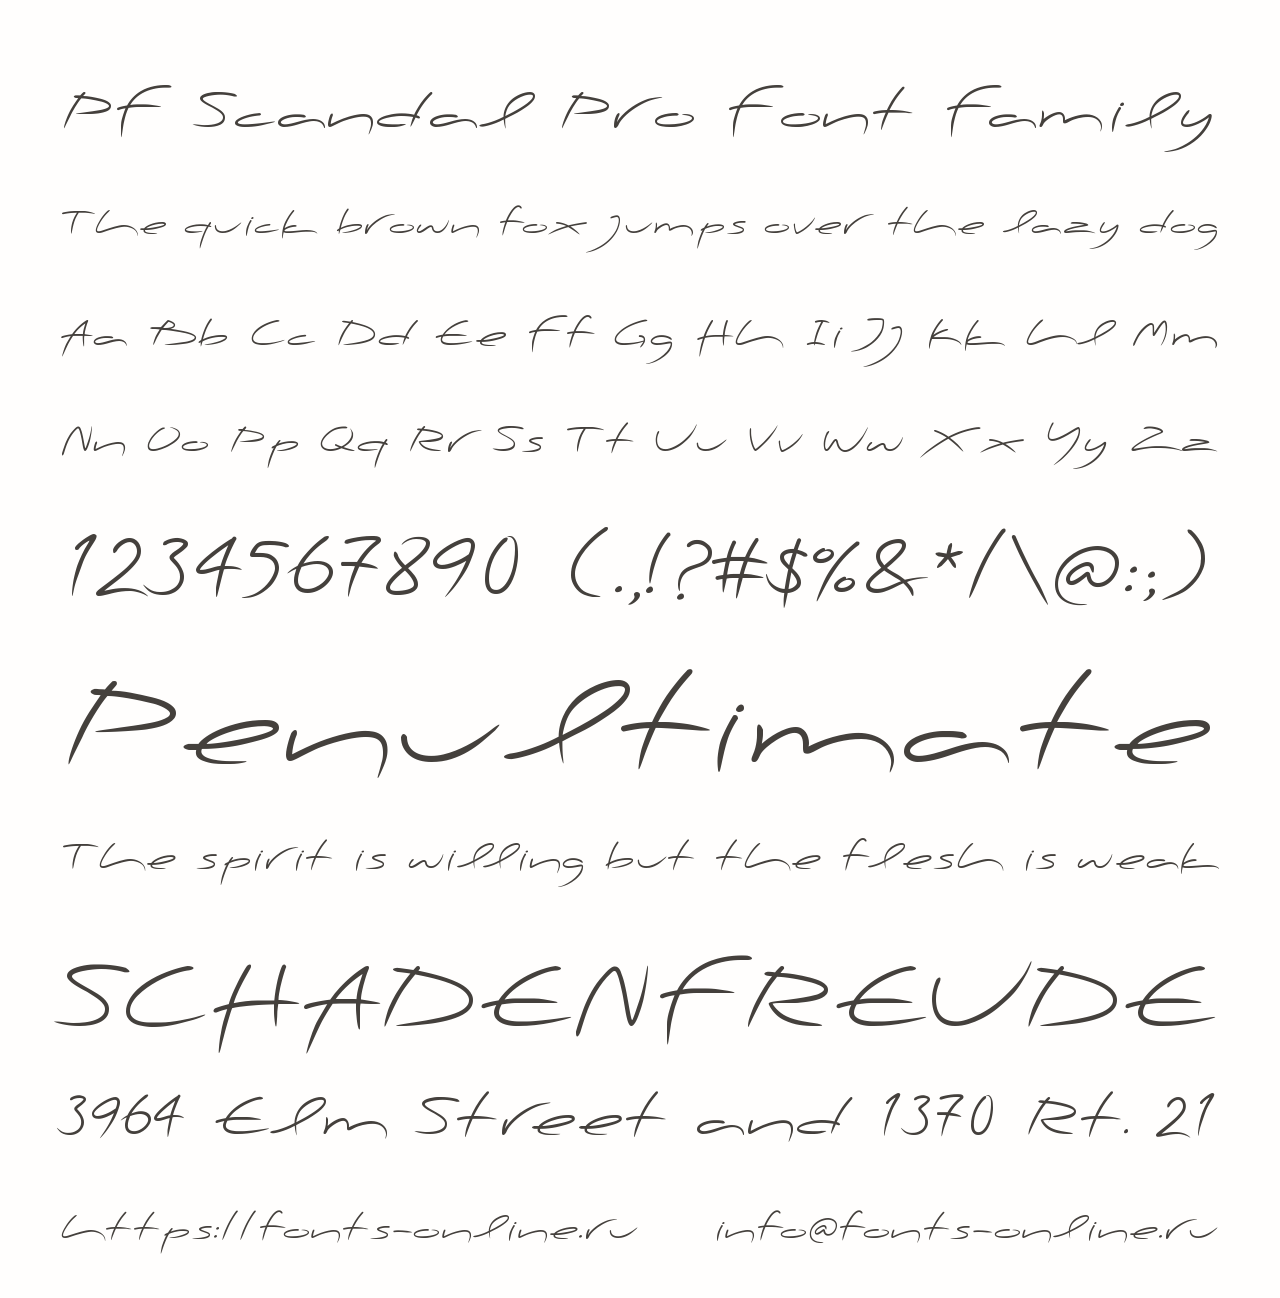 PF Scandal Pro Font Family
The quick brown fox jumps over the lazy dog
Aa Bb Cc Dd Ee Ff Gg Hh Ii Jj Kk Ll Mm
Nn Oo Pp Qq Rr Ss Tt Uu Vv Ww Xx Yy Zz
1234567890 (.,!?#$%&*/\@:;)
Penultimate
The spirit is willing but the flesh is weak
SCHADENFREUDE
3964 Elm Street and 1370 Rt. 21
https://fonts-online.ru info@fonts-online.ru